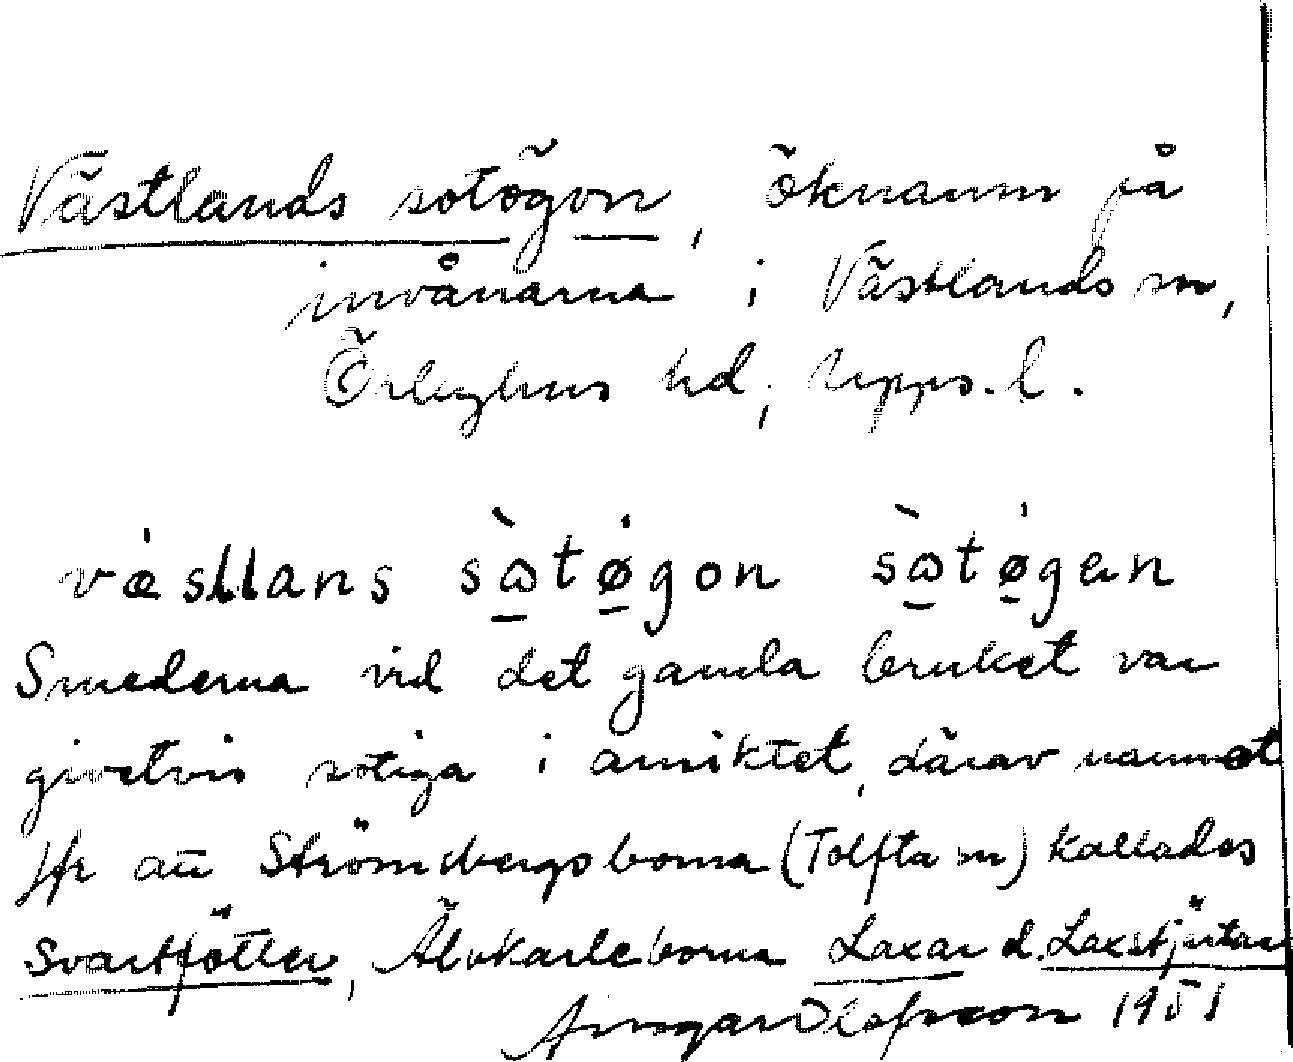 Västlands sotögon, öknamn på
invånarna i Västlands sn,
Örbyhus hd, Upps. l.
væsttans sòtøgon sòtøgen
Smederna vid det gamla bruket var
givetvis sotiga i ansiktet, därav namnet
Jfr att Strömsbergsborna (Tolfta sn) kallades
Svartfötter, Älvkarleborna Laxar el. Laxstjärtar
Ansgar Olofsson 1951